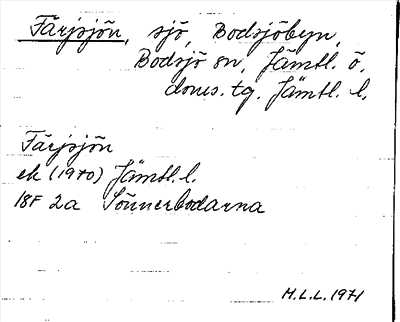 Färjsjön, sjö, Bodsjöbyn,
Bodsjö sn, Jämtl. ö.
doms. tg. Jämtl. l.
Färjsjön
ek (1970) Jämtl. l.
18F 2a Sönnerbodarna
H.L.L. 1971